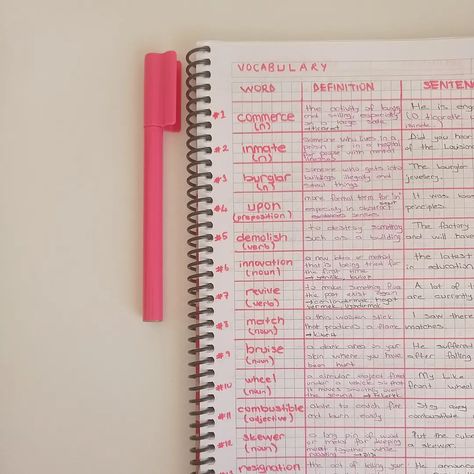 VOCABULARY
WORD DEFINITION SENTEN
#1 commerce (n)
the activity of buying and selling, especially on a large scale
He is eng
#2 inmate (n)
someone who lives in a prison or in a hospital for people with mental
Did you hear
of the Louisian
#3 burglar (n)
someone who gets into buildings illegally and steal things
The burglar
jewellery.
#4 upon (preposition)
more formal term for "on" especially in abstract senses
It was
principles.
#5 demolish (verb)
to destroy something such as a building
The factory
and will have
#6 innovation (noun)
a new idea or method that is being tried for the first time
the latest
in education
#7 revive (verb)
to make something from the past exist again
A lot of t
are current
#8 match (noun)
a thin wooden stick that produces a flame
I saw there
matches.
#9 bruise (noun)
a dark area in your skin where you have been hurt
He suffered
after falling
#10 wheel (noun)
a circular object fixed under a vehicle so that it moves smoothly over the ground
My Like
front wheel
#11 combustible (adjective)
able to catch fire and burn easily
Stay away
combustible
#12 skewer (noun)
a long pin of wood or metal for keeping meat together while
Put the cube
resignation
the act of telling your
He announ